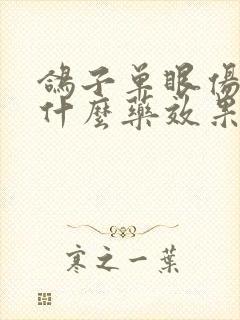 鴿子單眼傷
什麼藥效果
寒之一葉